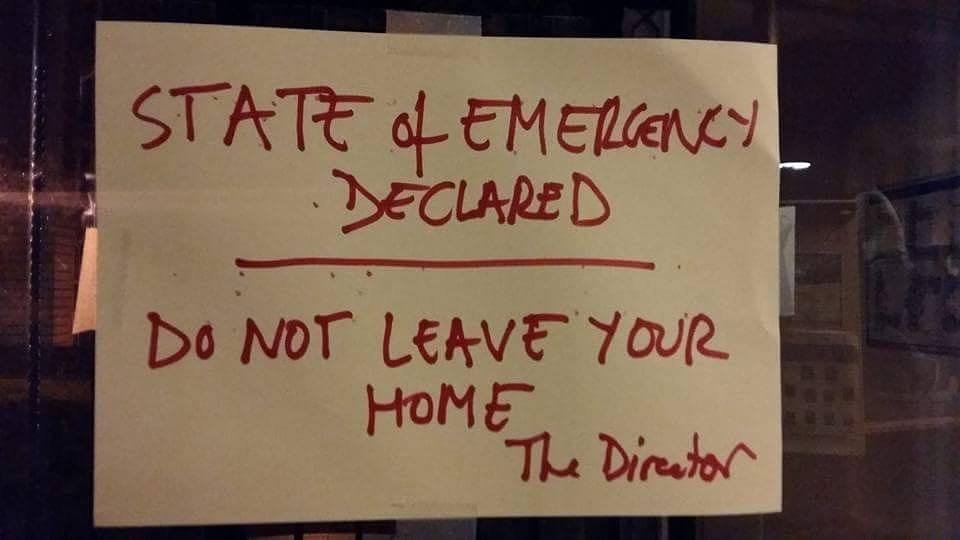 STATE of EMERGENCY
DECLARED
DO NOT LEAVE YOUR
HOME
The Director